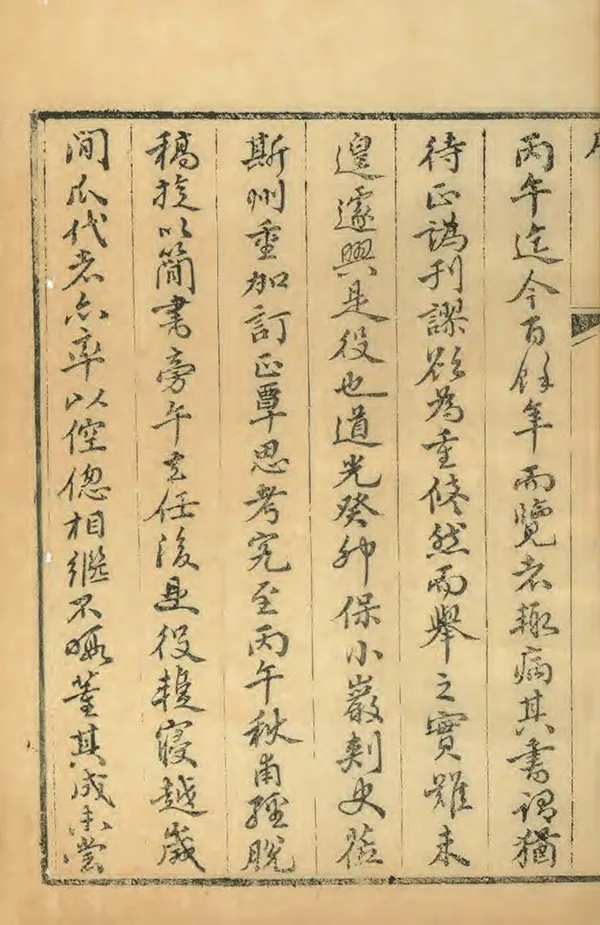 丙午迄今百餘年而覽者輒病其書謂猶
待正譌刊謬欲為重修然而舉之實難未
遑遽興是役也道光癸卯保小巖刺史蒞
斯州重加訂正覃思考究至丙午秋甫經脫
稿旋以簡書旁午去任後是役輟寢越歲
間瓜代者六率以倥傯相繼不暇董其成未嘗